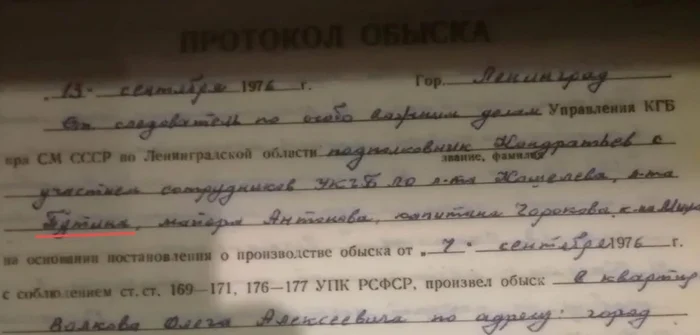 ПРОТОКОЛ ОБЫСКА
"13" сентября 1976 г. Гор. Ленинград
Ст. следователь по особо важным делам Управления КГБ
при СМ СССР по Ленинградской области подполковник Кондратьев с
звание, фамилия
участием сотрудников УКГБ ЛО л-та Кошелева, л-та
Путина, майора Антонова, капитана Горохова, к-на
на основании постановления о производстве обыска от „7" сентября 1976 г.
с соблюдением ст. ст. 169—171, 176—177 УПК РСФСР, произвел обыск в квартире
Волкова Олега Алексеевича по адресу: город